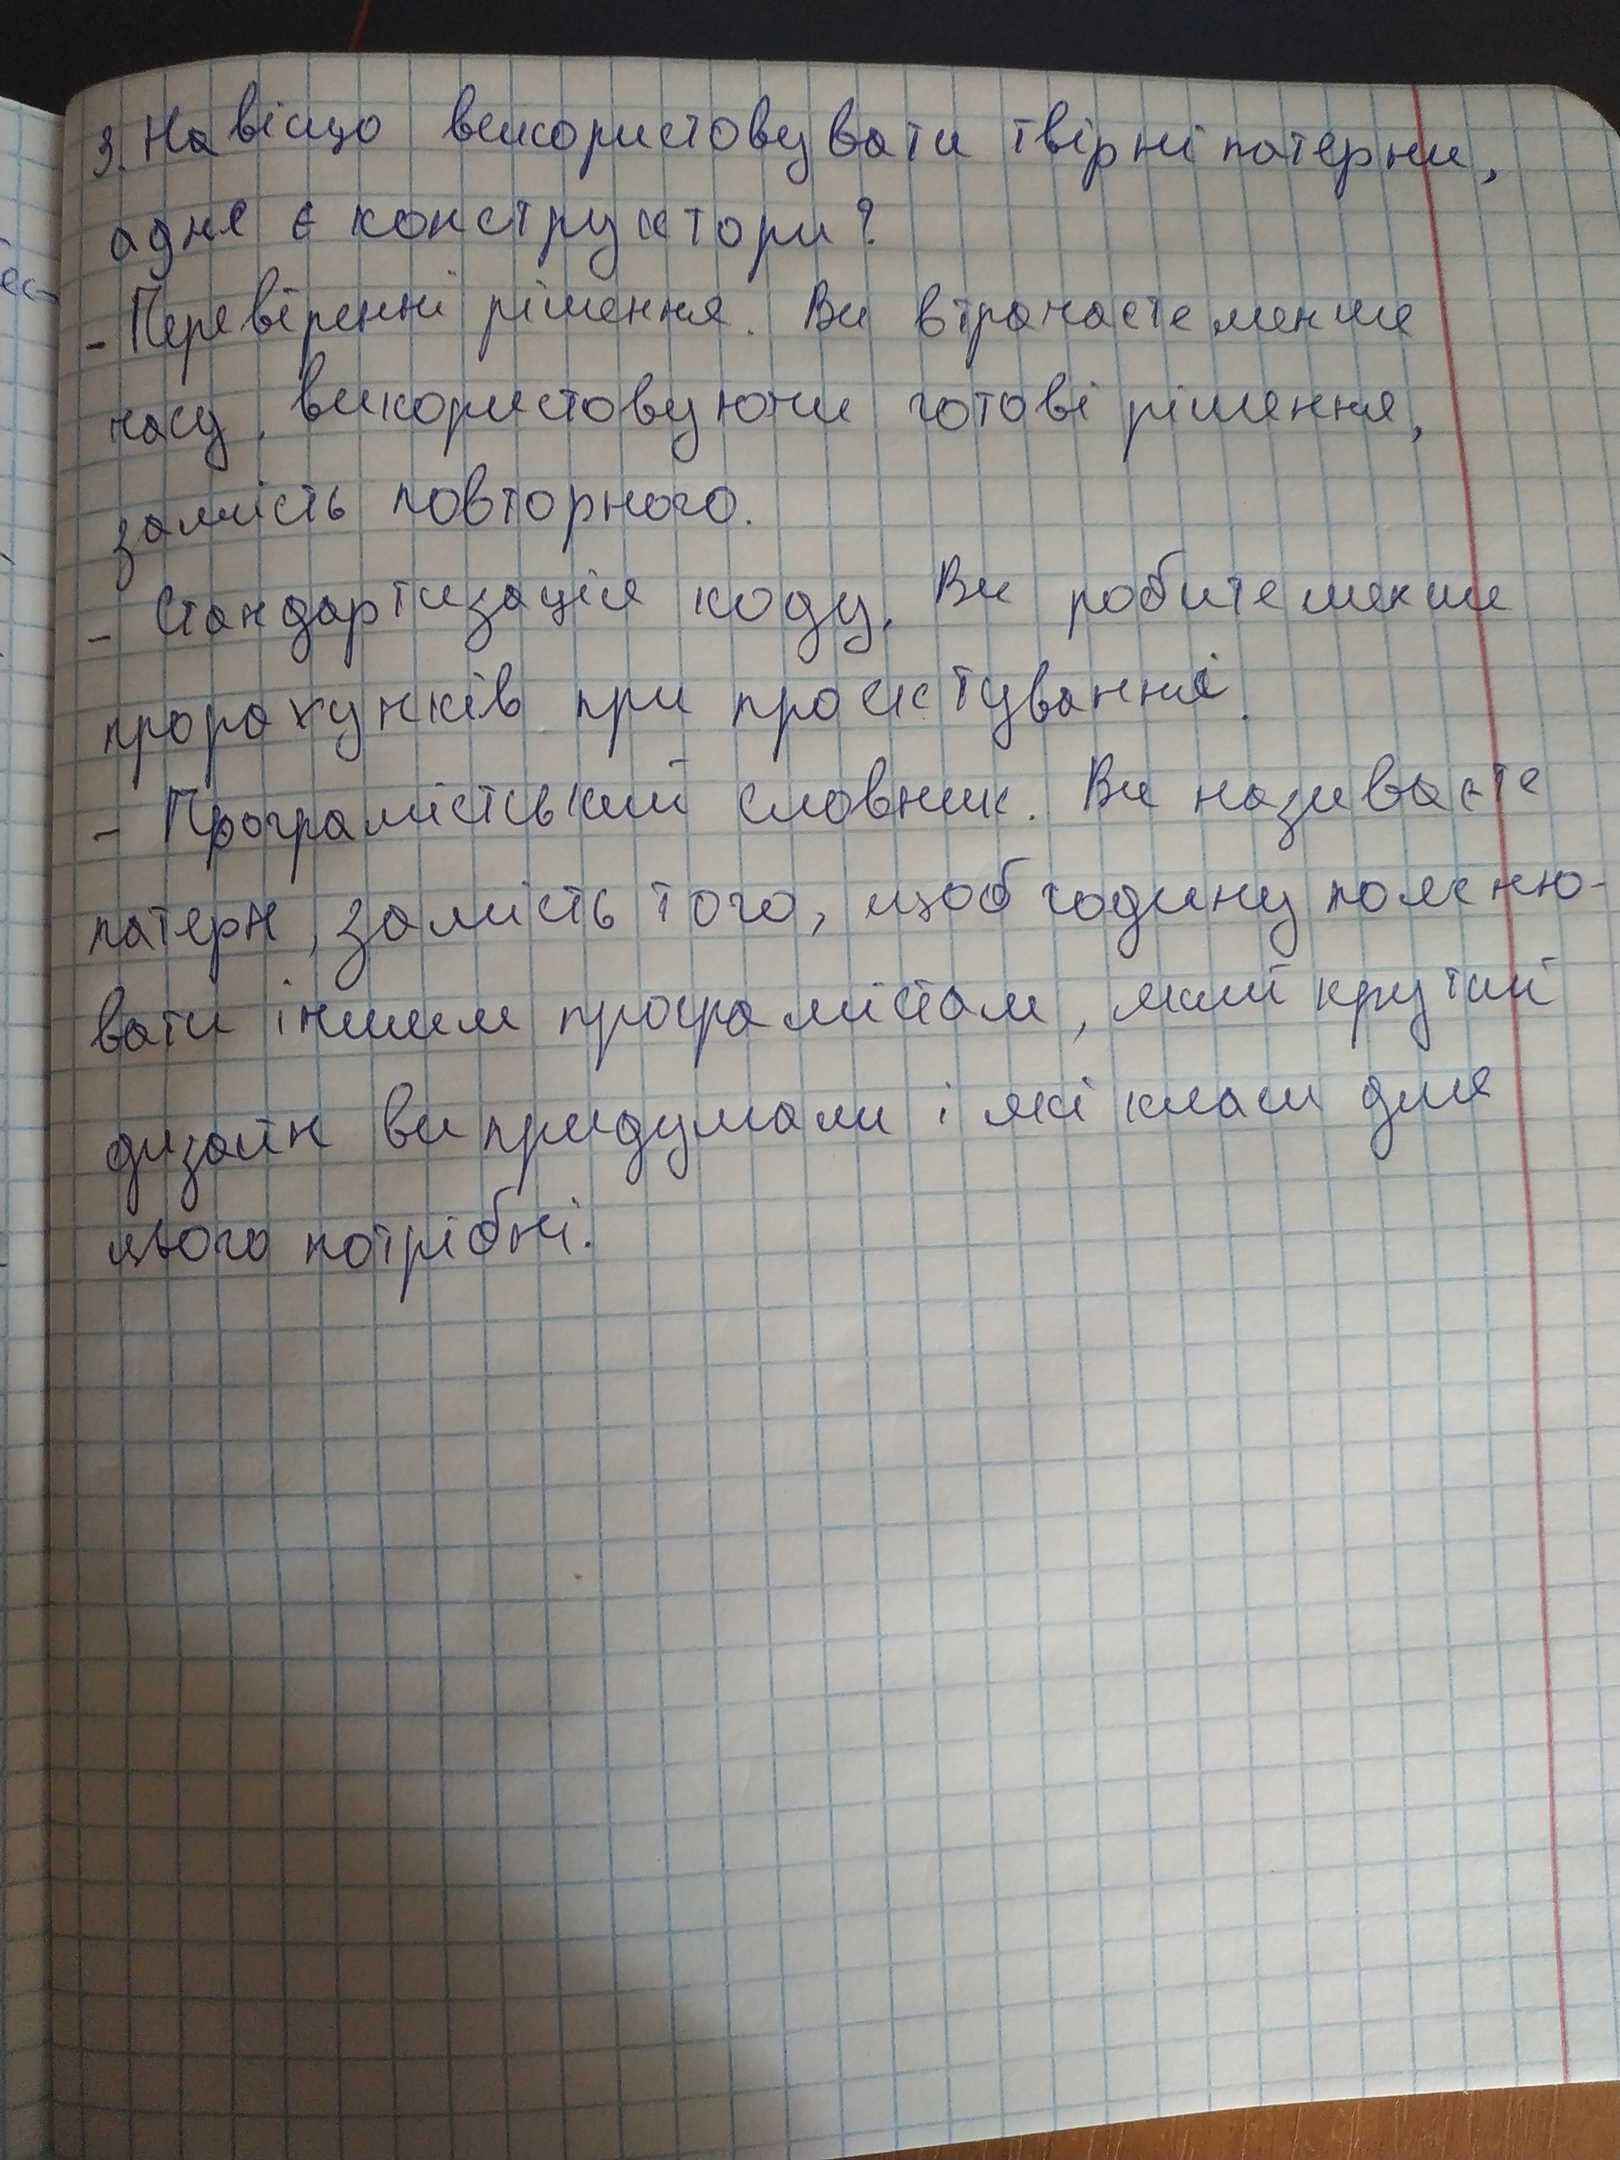 3. Навіщо використовувати твірні патерни,
адже є конструктори?
- Перевіренні рішення. Ви втрачаєте менше
часу, використовуючи готові рішення,
замість повторного.
- Стандартизація коду. Ви робите менше
прорахунків при проєктуванні.
- Програмістський словник. Ви називаєте
патерн, замість того, щоб годину поясню-
вати іншим програмістам, який крутий
дизайн ви придумали і які класи для
цього потрібні.